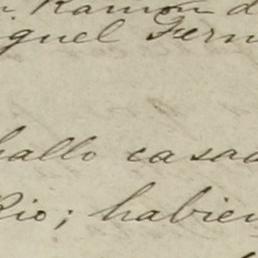 n Ramon d
iguel Fern
hallo casad
Rio; habien